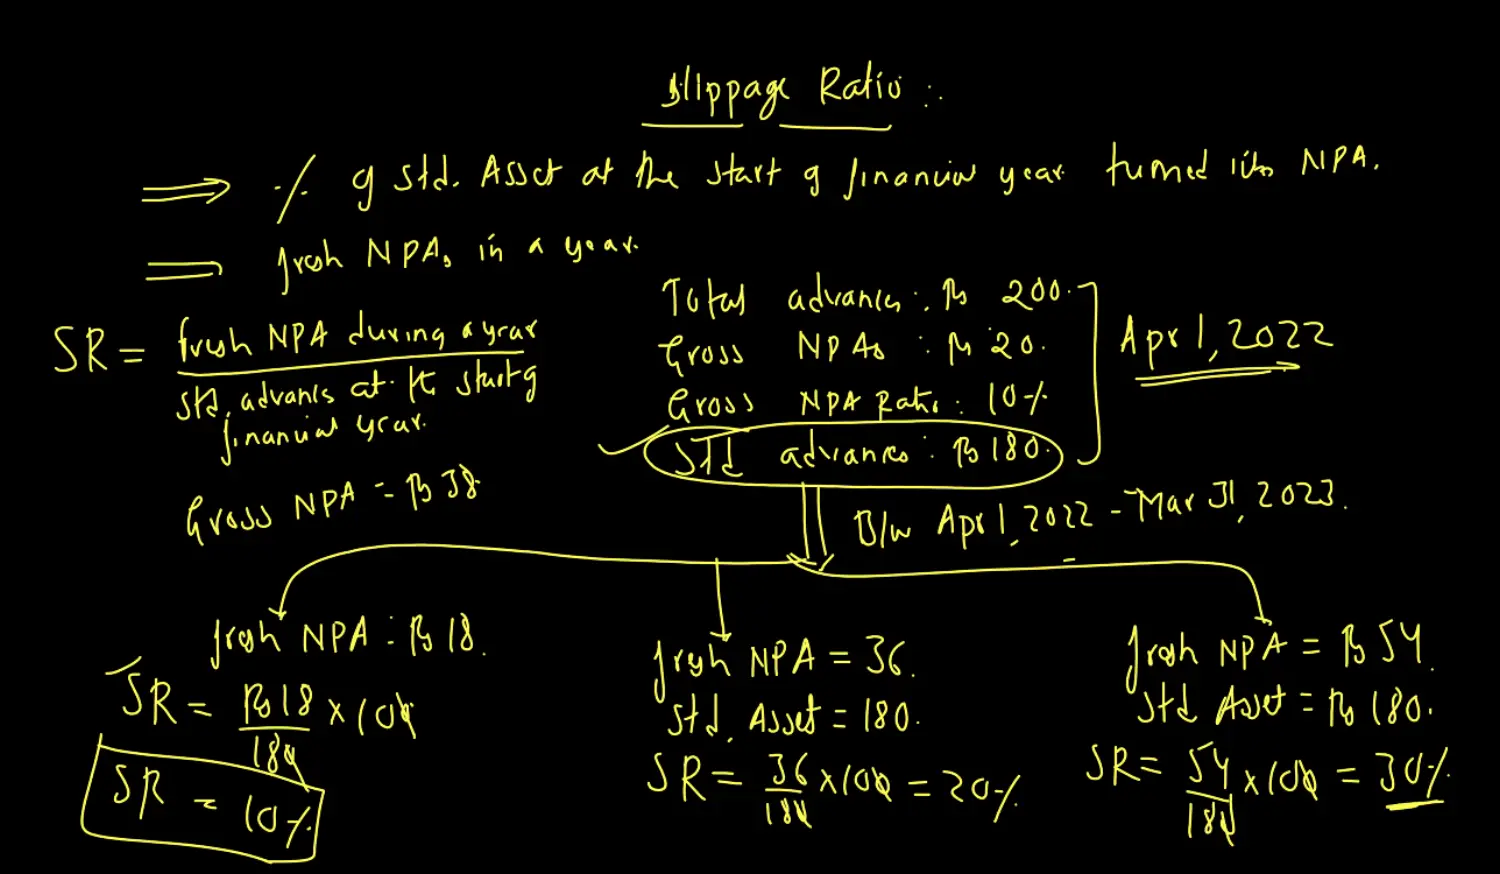 Slippage Ratio :
⇒ % of Std. Asset at the start of financial year turned into NPA.
= fresh NPAs in a year.
SR = fresh NPA during a year
Std. advances at the start of
financial year.
Total advances : Rs 200.
Gross NPAs : Rs 20.
Gross NPA Ratio : 10%
Std advances : Rs 180.
Apr 1, 2022
Gross NPA = Rs 38
B/w Apr 1, 2022 - Mar 31, 2023.
fresh NPA : Rs 18.
SR = Rs 18 × 100
180
SR = 10%
fresh NPA = 36.
Std. Asset = 180.
SR = 36 × 100 = 20%
180
fresh NPA = Rs 54.
Std Asset = Rs 180.
SR = 54 × 100 = 30%
180